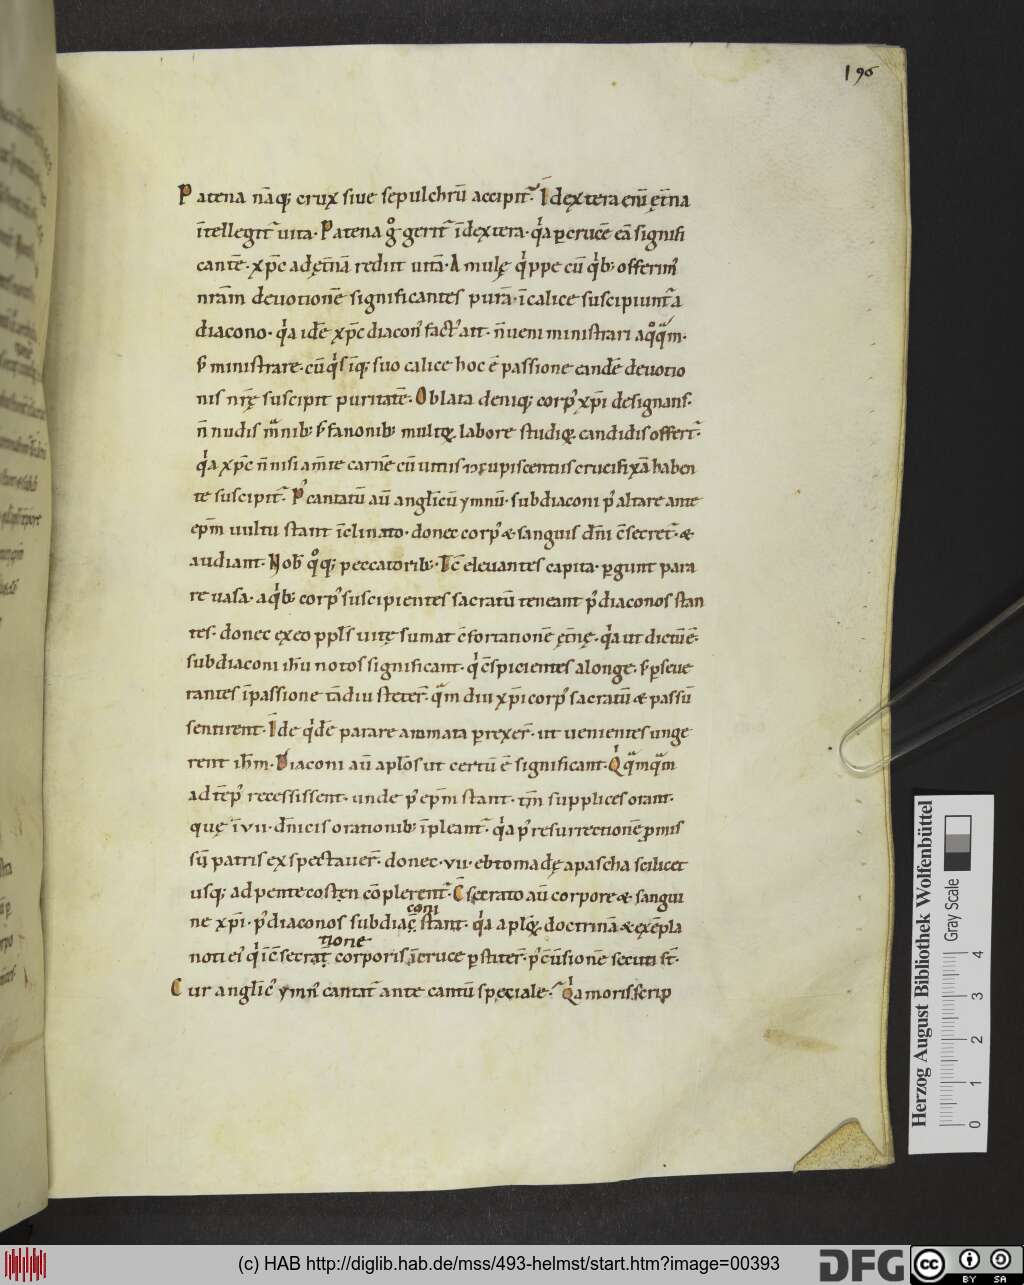 196
Patena nāq; crux siue sepulchrū accipit᷑. Ī dextera enī ęt̄na
īntellegit᷑ uita. Patena g̊ gerit᷑ ī dextera. q̇a p̲ crucē eā signifi
cantē. xp̄c ad ęt̄nā rediit uitā. A mulę q̇ppe cū q̇b; offerim᷒
nr̄am deuotionē significantes purā. ī calice suscipiunt᷑ a
diacono. q̇a idē xp̄c diacon᷒ fact᷒ ait. n̄ ueni ministrari a q̊q̄m.
s; ministrare. cū q̇s īq; suo calice hoc ē passione eandē deuotio
nis nr̄ę suscipit puritatē. Oblata deniq; corp᷒ xp̄i designans.
n̄ nudis m̄nib; s; fanonib; multoq; labore studioq; candidis offert᷑.
q̇a xp̄c n̄ nisi a m̄te carnē cū uitiis 7 ɔcupiscentiis crucifixā haben
te suscipit᷑. P᷒ cantatū aū anglicū ymnū. subdiaconi p᷒ altare ante
ep̄m uultu stant īclinato. donec corp᷒ & sanguis dn̄i c̄secret᷑. &
audiant. Nob̄ q̊q; peccatorib;. Tc̄ eleuantes capita. p̲gunt para
re uasa. a q̇b; corp᷒ suscipientes sacratū teneant p᷒ diaconos stan
tes. donec ex eo ppl̄s uitę sumat c̄fortationē ęt̄nę. q̇a ut dictū ē.
subdiaconi ih̄u notos significant. q̇ c̄spicientes a longe. s; p̲seue
rantes ī passione tādiu steter̄. q̄m diu xp̄i corp᷒ sacratū & passū
sentirent. Īde q̇dē parare aromata p̲rexer̄. ut uenientes unge
rent ih̄m. Diaconi aū apl̄os ut certū ē significant. Q̇ q̄mq̄m
ad tēp᷒ recessissent. unde p᷒ ep̄m stant. tm̄ supplices orant.
quę ī vii. dn̄icis orationib; īpleant᷑. q̇a p᷒ resurrectionē p̲mis
sū patris exspectauer̄. donec. vii. ebtomadę a pascha scilicet
usq; ad pentecosten cōplerent᷑. C̄secrato aū corpore & sangui
ne xp̄i. p᷒ diaconos subdiac̄ stant. q̇a aplōq; doctrinā & exēpla
coni
noti ei᷒ q̇ ī c̄secrat᷑ corporis ī cruce p̲stiter̄. p᷒ cū̄sionē secuti st̄.
tione
Cur anglic᷒ ymn᷒ cantat᷑ ante cantū speciale. Q̇a moris scrip
Herzog August Bibliothek Wolfenbüttel
Gray Scale
0 1 2 3 4
(c) HAB http://diglib.hab.de/mss/493-helmst/start.htm?image=00393
DFG
cc BY SA